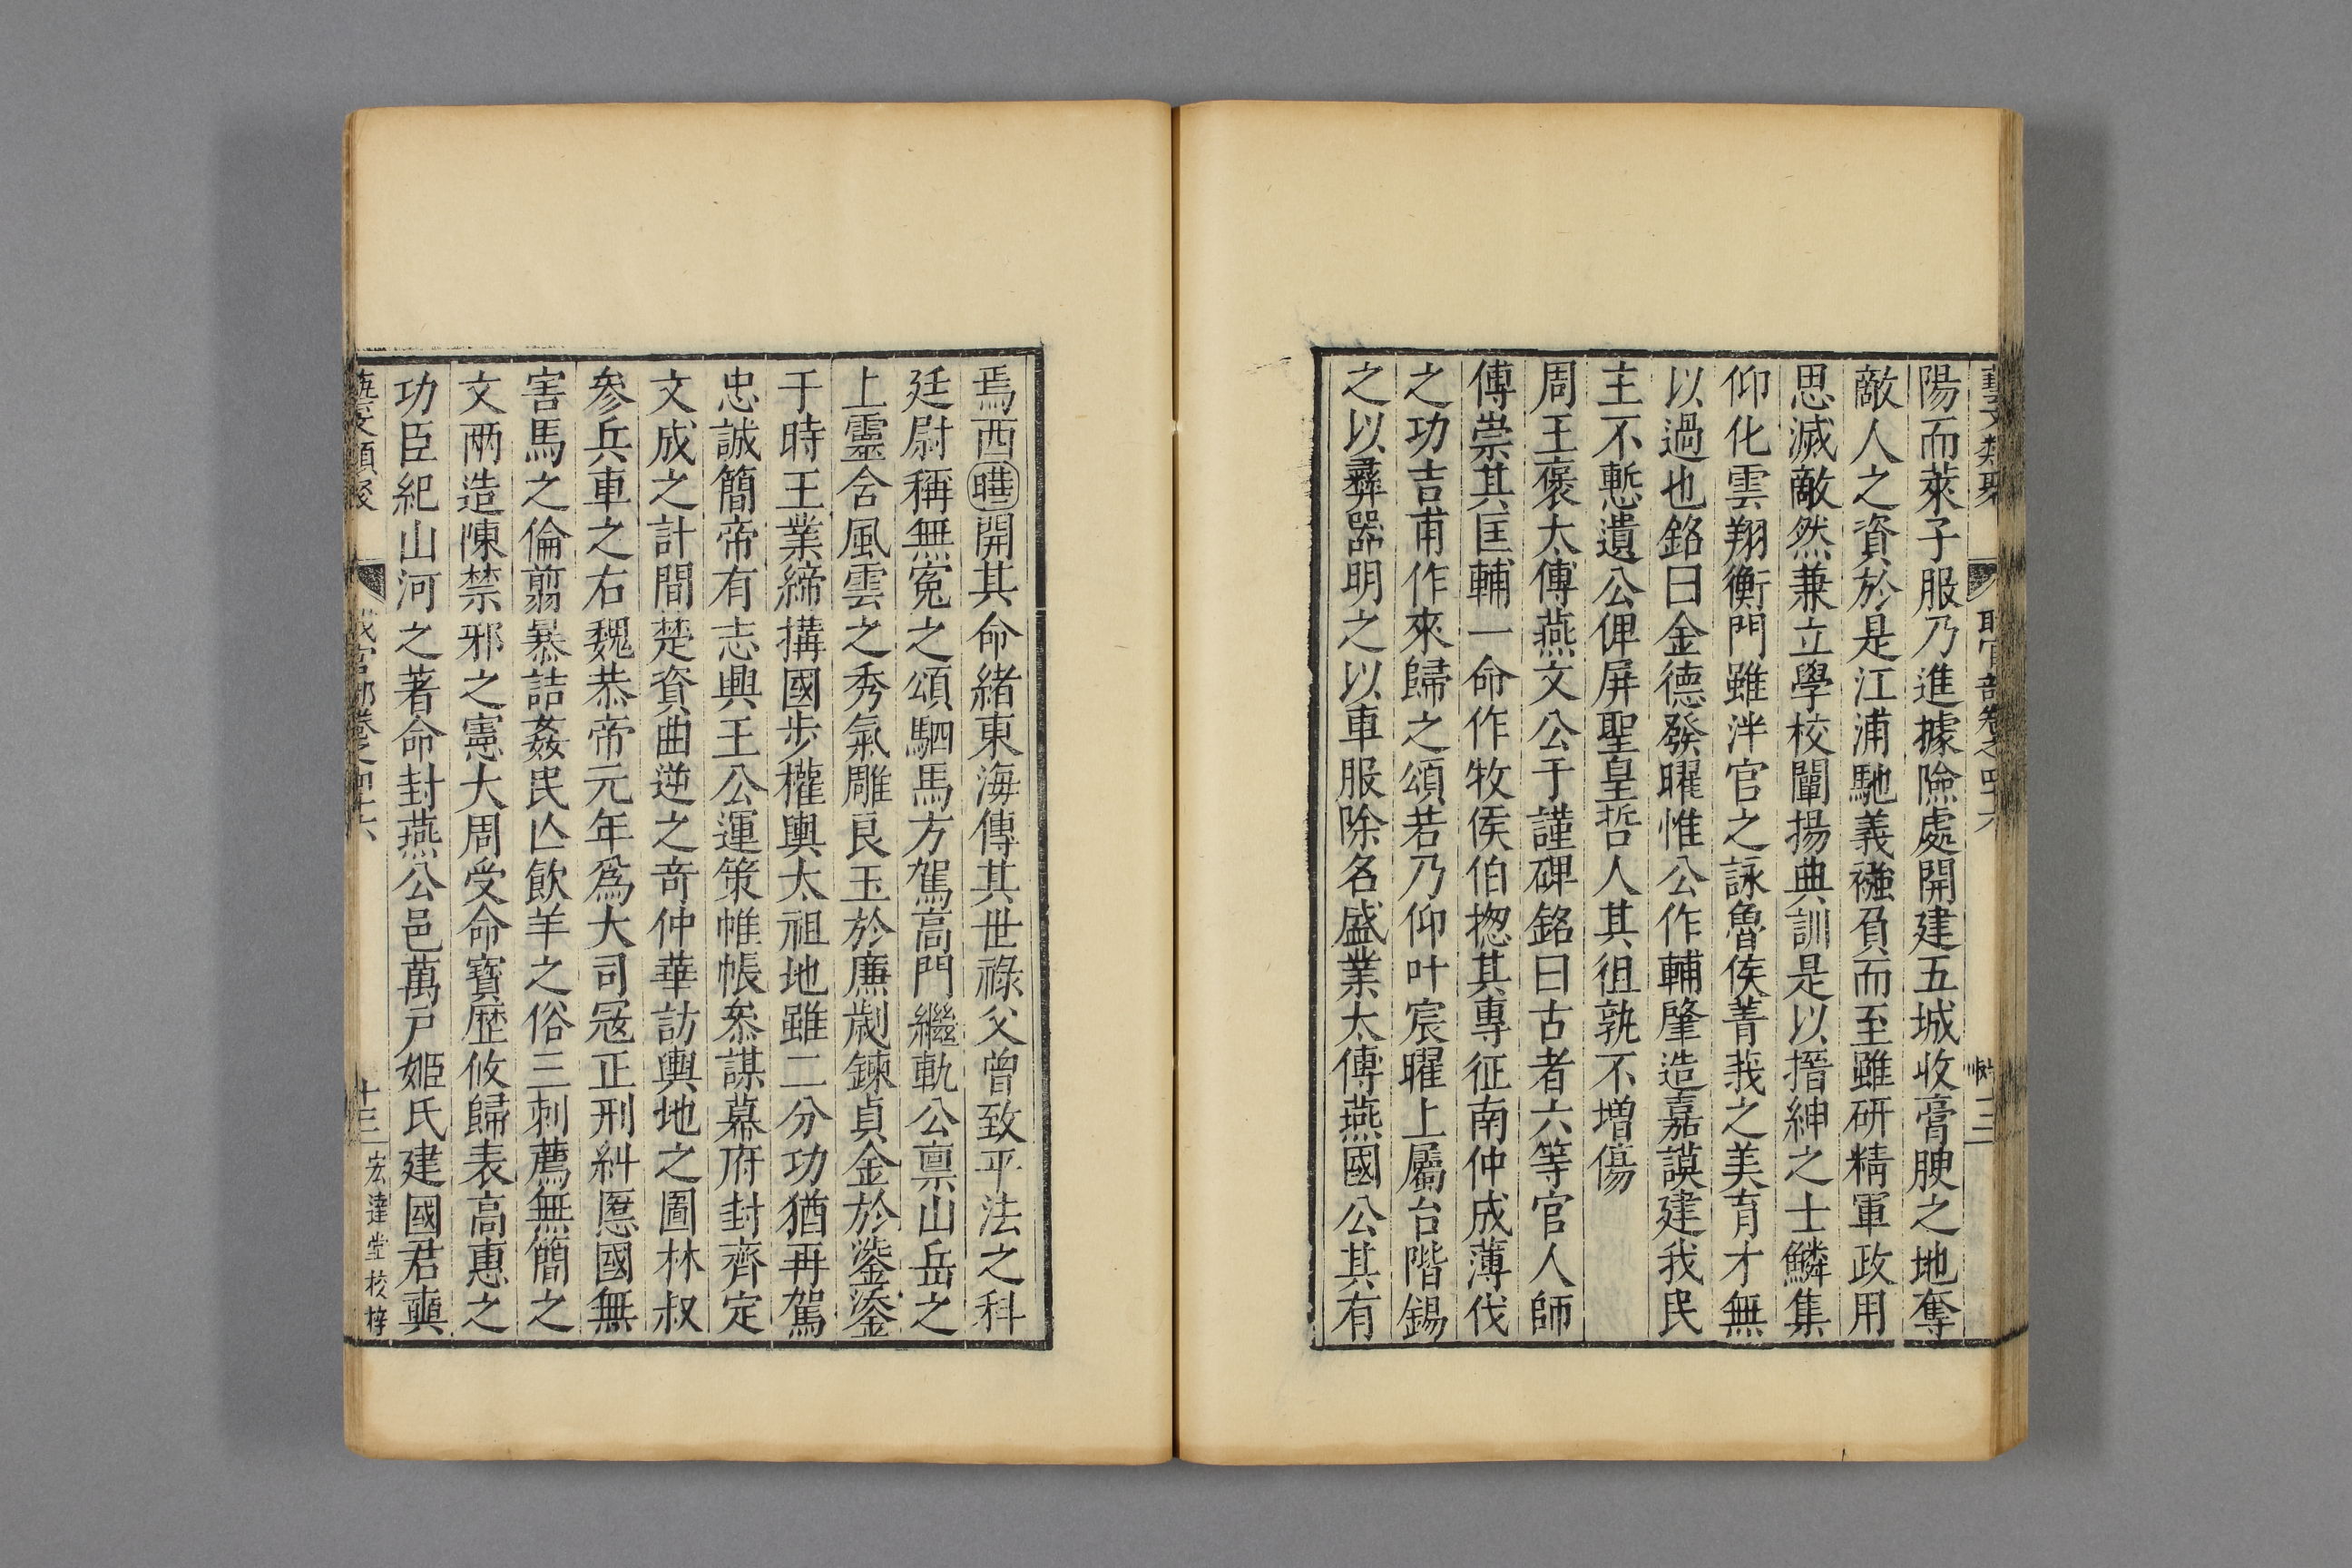 藝文類聚 職官部卷之四十六
陽而萊子服乃進據險處開建五城收膏腴之地奪
敵人之資於是江浦馳義襁負而至雖研精軍政用
思滅敵然兼立學校闡揚典訓是以搢紳之士鱗集
仰化雲翔衡門雖泮宮之詠魯侯菁莪之美育才無
以過也銘曰金德發曜惟公作輔肇造嘉謨建我民
主不慭遺公俾屏聖皇哲人其徂孰不增傷
周王褒太傅燕文公于謹碑銘曰古者六等官人師
傅崇其匡輔一命作牧侯伯揔其專征南仲成薄伐
之功吉甫作來歸之頌若乃仰叶宸曜上屬台階錫
之以彝器明之以車服除名盛業太傅燕國公其有
焉西曄開其命緒東海傳其世祿父曾致平法之科
廷尉稱無冤之頌駟馬方駕高門繼軌公禀山岳之
上靈含風雲之秀氣雕良玉於廉劌鍊貞金於鋈鋈
于時王業締搆國步權輿太祖地雖二分功猶再駕
忠誠簡帝有志興王公運策帷帳叅謀幕府封齊定
文成之計間楚資曲逆之奇仲華訪輿地之圖林叔
参兵車之右魏恭帝元年爲大司冦正刑糾慝國無
害馬之倫翦暴詰姦民亾飮羊之俗三刺薦無簡之
文兩造陳禁邪之憲大周受命寶歷攸歸表高惠之
功臣紀山河之著命封燕公邑萬戸姬氏建國君奭
藝文類聚 職官部卷之四十六 十三 宏達堂校梓